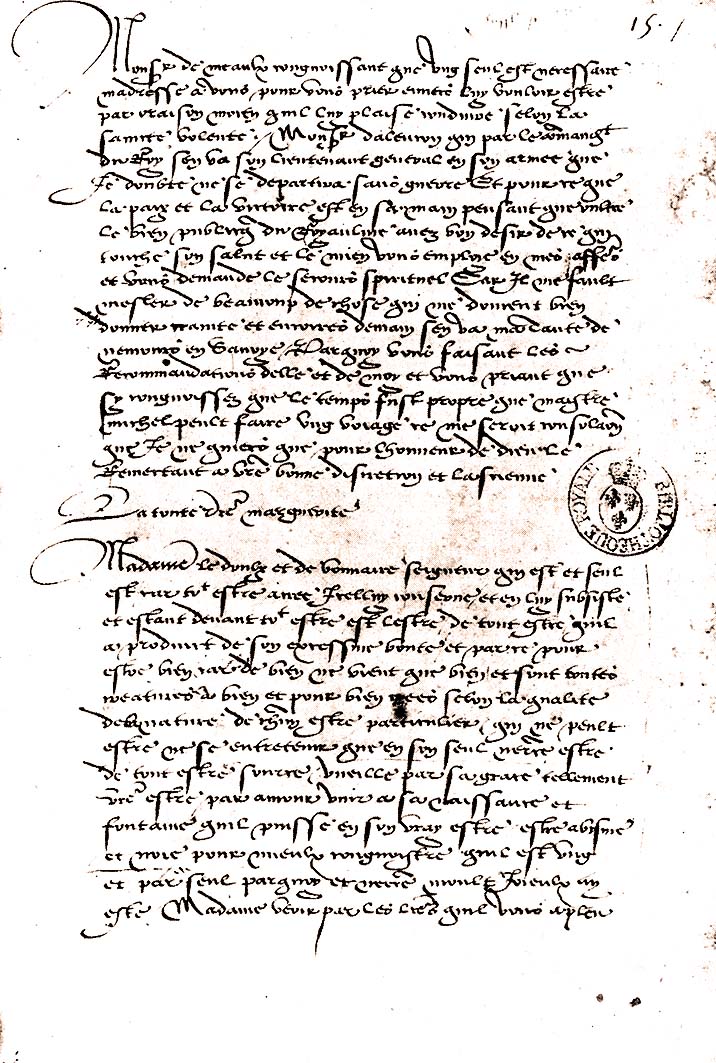 15.
Monsr de meaulx congnoissant que ung seul est necessaire
madresse a vous pour vous prier envers luy vouloir estre
par oraison moien quil luy plaise conduire selon sa
saincte volente. Monsr dalencon qui par le commandt
du Roy sen va son lieutenant general en son armee que
Je doubte ne se departira sans guerre Et pour ce que
la paix et la victoire est en sa main pensant que oultre
le bien publicq du Royaulme avez bon desir de ce qui
touche son salut et le mien vous emploie en mes afferes
et vous demande le secours spirituel Car Il me fault
mesler de beaucoup de chose qui me doivent bien
donner craincte et encores demain sen va ma tante de
nemours en Savoye Parquoy vous faisant les
Recommandations delle et de moy et vous priant que
sy congnoissez que le temps fust propre que maistre
michel peult faire ung voiage ce me seroit consolacon
que Je ne quiers que pour lhonneur de dieu Le
Remectant a vre bonne discretion et la sienne
La toute vre marguerite
Madame le doulx et debonnaire seigneur qui est et seul
est car tot estre avec Icelluy conferé, et en luy subsiste
et estant devant tot estre est lestre de tout estre quil
a produict de son excessive bonte et par ce pour
estre bien car de bien ne vient que bien et sont toutes
creatures a bien et pour bien crees selon la qualite
de nature de chun estre particulier, qui ne peult
estre ne se entretenir que en son seul necre estre
de tout estre source, vueille par sa grace tellement
vre estre par amour unir a sa naissance et
fontaine quil puisse en son vray estre estre abisme
et noie pour mieulx congnoistre quil est ung
et par seul parquoy et necre moult Joieulx ay
este Madame veoir par les lres quil vous a pleu
BIBLIOTHEQUE ROYALE